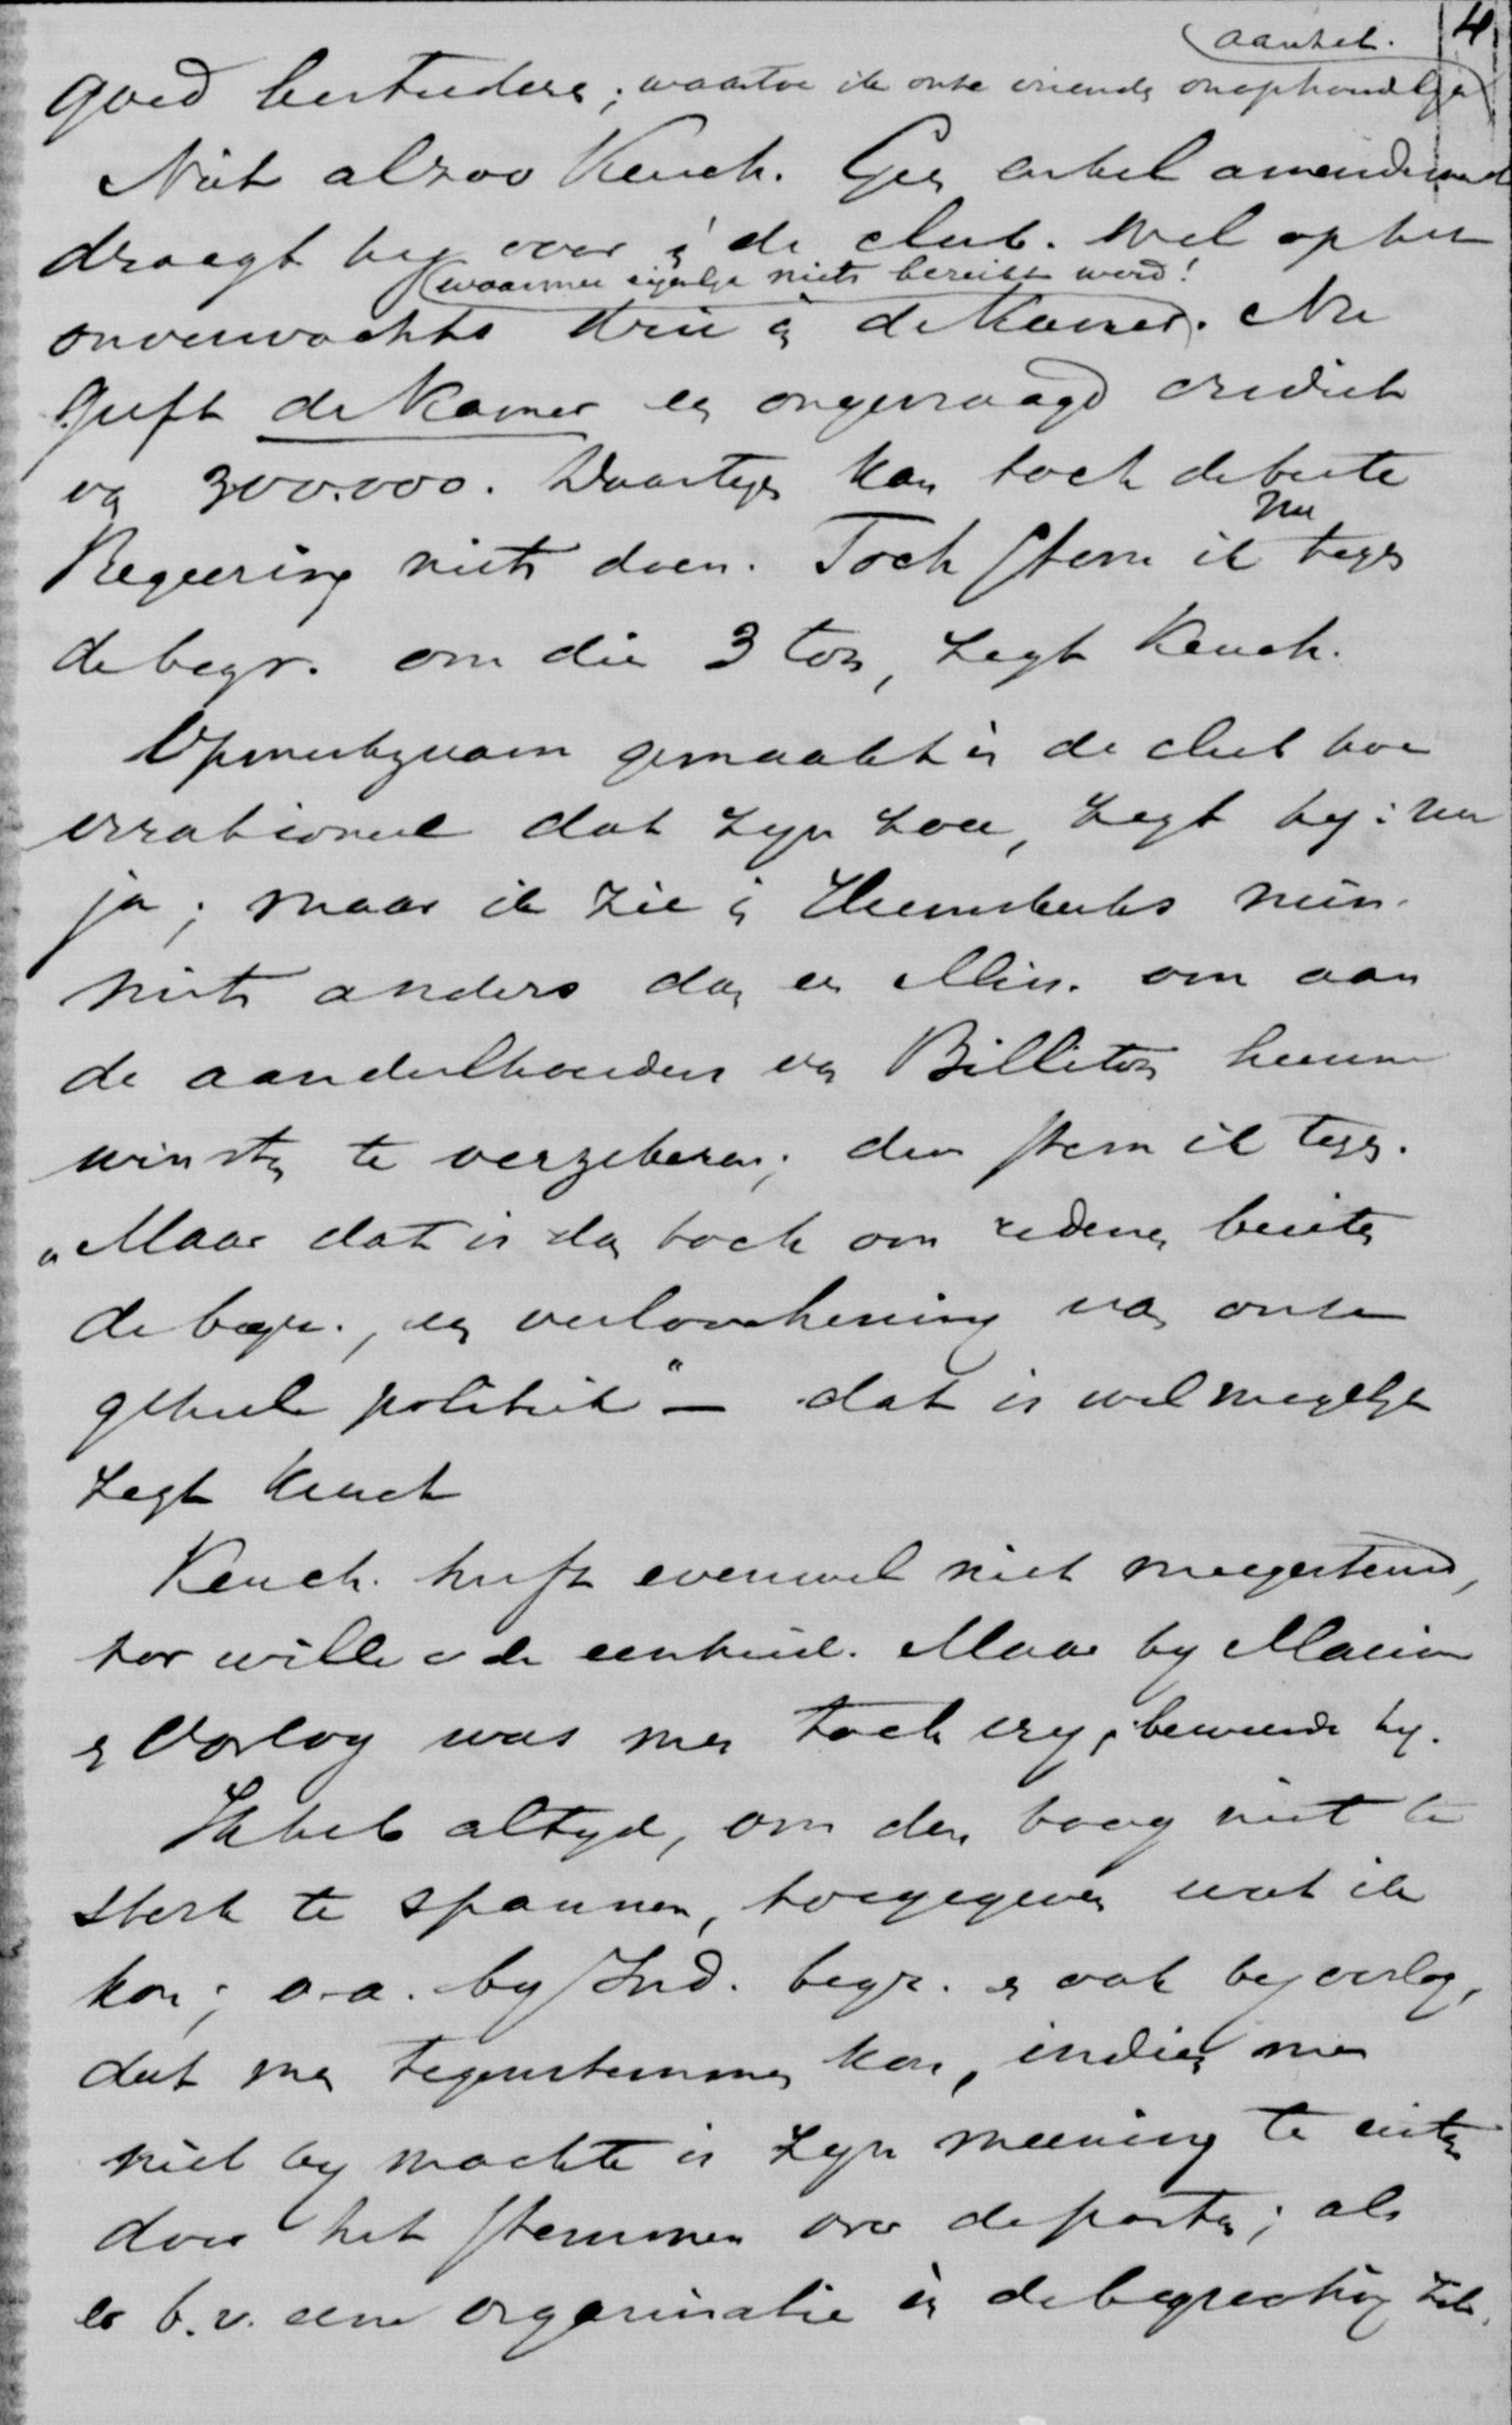 4
aanzet.
goed bestudere; waartoe ik onze vriende onophoudelyk
Niet alzoo Keuch. Geen enkel amendement
draagt hy voor in de club. Wel op het
(waarmee eigenlyk niets bereikt werd!
onverwachts drie in de Kamer. Nu
geeft de Kamer een ongevraagd crediet
van 300.000. Daartegen kan toch de beste
nu
Regeering niets doen. Toch stem ik tegen
de begr. om die 3 ton, zegt Keuch.
Opmerkzaam gemaakt in de club hoe
irrationeel dat zyn zou, zegt hy: nu
ja; maar ik zie in Heemskerks min.
niets anders dan een Min. om aan
de aandeelhouders van Billiton hunne
winsten te verzekeren; dus stem ik tegen.
"Maar dat is dan toch om redenen buiten
de begr., een verloochening van onze
geheele politiek" — dat is wel mogelyk
zegt Keuch
Keuch. heeft evenwel niet meegestemd,
ter wille v de eenheid. Maar by Marine
en Oorlog was men toch vry, beweerde hy.
Ik heb altyd, om den boog niet te
sterk te spannen, toegegeven wat ik
kon; o.a. by Ind. begr. en ook by oorlog,
dat men tegenstemmen kon, indien men
niet by machte is zyn meening te uiten
door het stemmen over de posten; als
er b.v. eene organisatie in de begrooting zit.